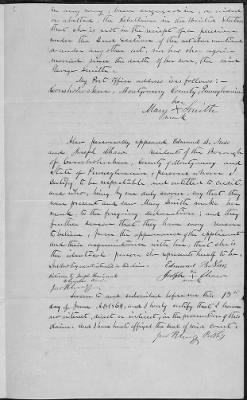 in any way, been engaged in, or aided
or abetted, the Rebellion in the United States
that she is not in the receipt of a pension
under the 2nd section of the act above mentioned
or under any other act, nor has she again
married since the death of her son, the said
Smith.
My Post Office address is as follows:
Conshohocken, Montgomery County, Pennsylvania
her
Mary X Smith
mark
Also personally appeared Edmund D. Ness
and Joseph residents of the Borough
of Conshohocken, County of Montgomery and
State of Pennsylvania, persons whom I
certify to be respectable and entitled to credit,
and who, being by me duly sworn, say that they
were present and saw Mary Smith make her
mark to the foregoing declaration; and they
further swear that they have every reason
to believe, from the appearance of the applicant
and their acquaintance with her, that she is
the identical person she represents herself to be;
Edmund D. Ness
Joseph
mark
Sworn to and subscribed before me this 19th
day of June A.D. 1868, and I hereby certify that I have
no interest, direct or indirect, in the prosecution of this
claim. And I have hereto affixed the seal of said court.